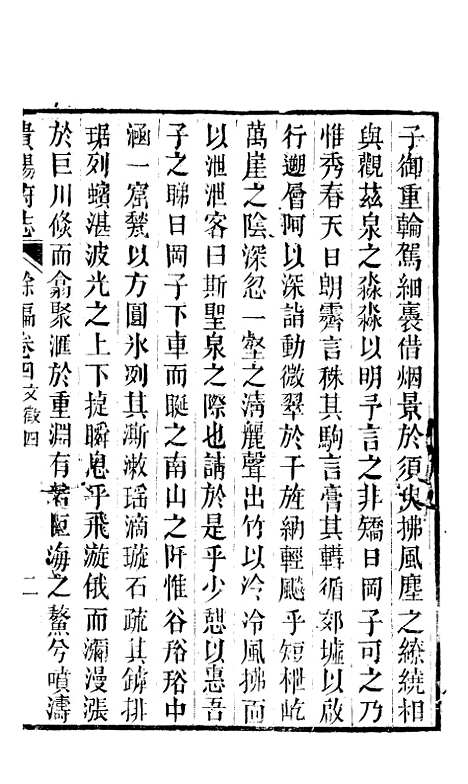 子御重輪駕細裹借烟景於須臾拂風塵之繚繞相
與觀茲泉之淼淼以明予言之非矯日岡子可之乃
惟秀春天日朗霽言秣其駒言膏其轄循郊墟以啟
行遡層阿以深詣動微翠於千旌納輕颸乎短檉屹
萬崖之陰深忽一壑之清麗聲出竹以泠泠風拂面
以洩洩客曰斯聖泉之際也請於是乎少憩以惠吾
子之睇日岡子下車而眺之南山之阡惟谷谺谺中
涵一窟甃以方圓氷列其漸漱瑤滴璇石疏其罅排
琚列蠙湛波光之上下捷瞬息乎飛漩俄而瀰漫漲
於巨川倏而翕聚滙於重淵有若陋海之鰲兮噴濤
貴陽府志 餘編卷四文徵四 二